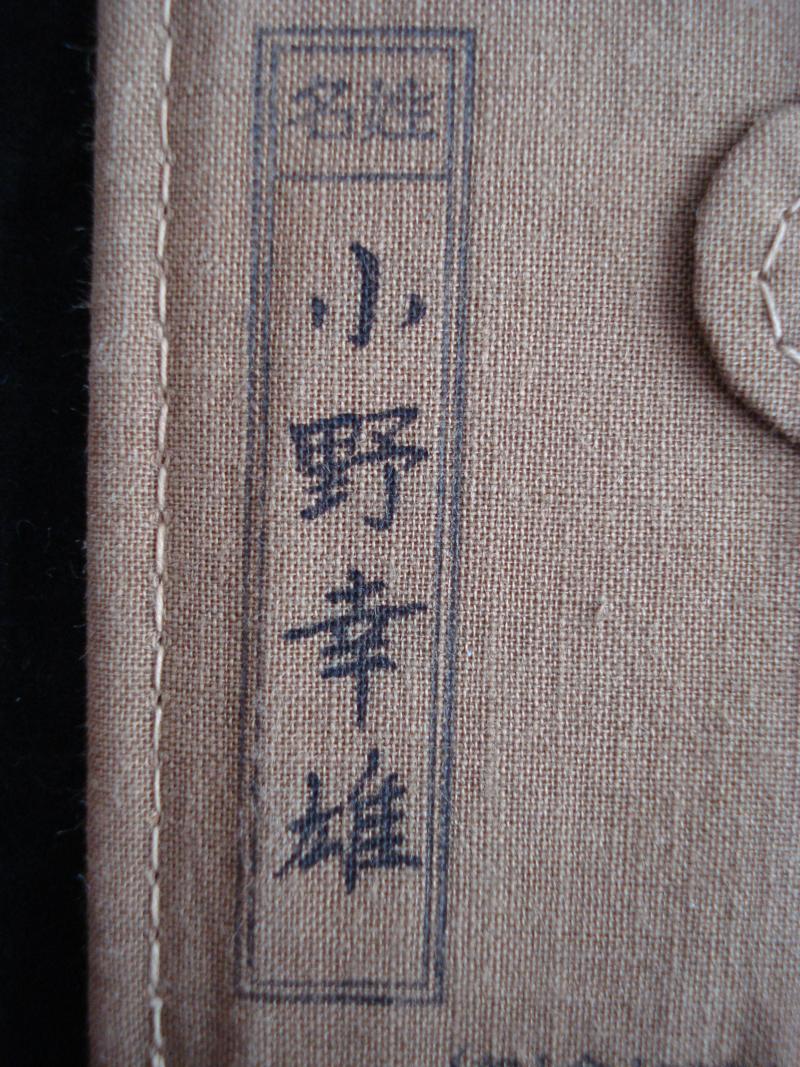 姓名
小野幸雄